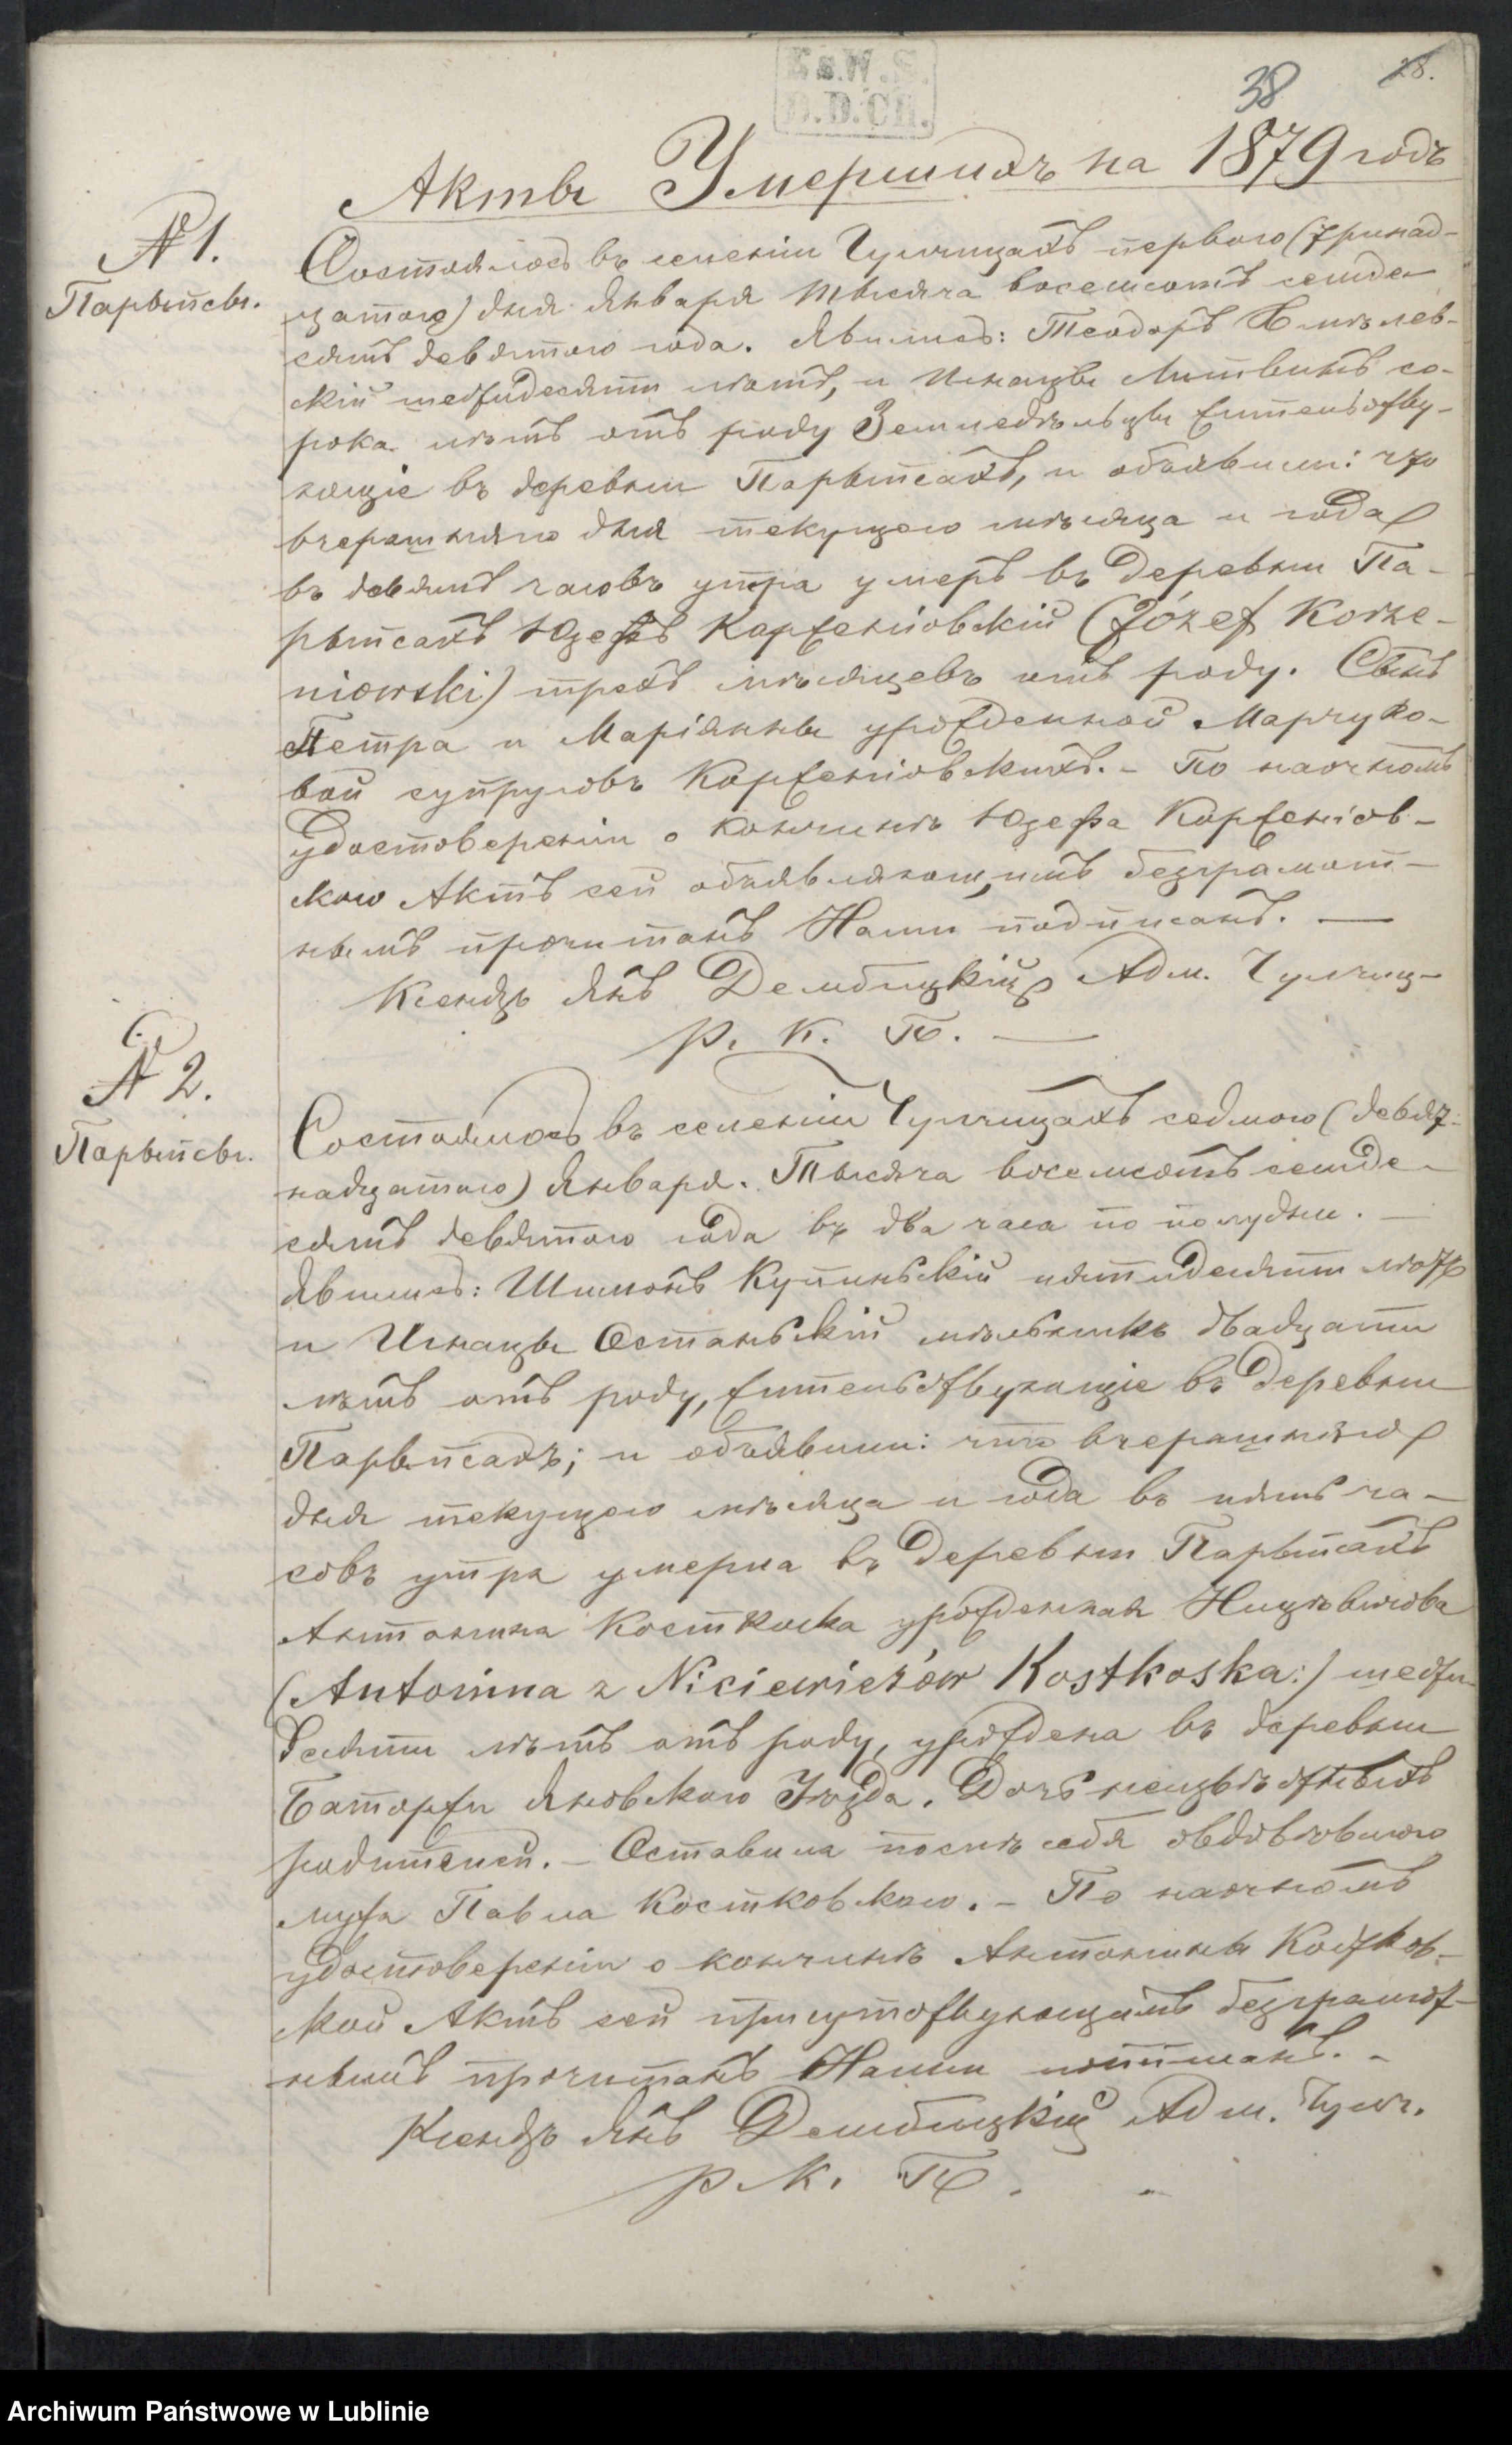 38 28.
K.s.W.S.
D.D.Ch.
Акты Умершихъ на 1879 годъ
№ 1.
Парыпсы.
Состоялось въ селеніи Чулчицахъ перваго (тринад-
цатого) дня Января тысяча восемсотъ семде-
сятъ девятого года. Явились: Теодоръ Хмѣлев-
скій шестидесяти лѣтъ, и Игнацы Литвинъ со-
рока лѣтъ отъ роду Земледѣльцы жительству-
ющіе въ деревни Парыпсахъ, и объявили: что
вчерашняго дня текущего мѣсяца и года
въ девять часовъ утра умеръ въ деревни Па-
рыпсахъ Юзефъ Корженіовскій (Józef Korże-
niowski) трехъ мѣсяцевъ отъ роду. Сынъ
Петра и Маріянны урожденной Марчуко-
вой супруговъ Корженіовскихъ. - По наочномъ
удостовереніи о кончинѣ Юзефа Корженіов-
ского Актъ сей объявляющимъ безграмот-
нымъ прочитанъ Нами подписанъ. —
Ксендзъ Янъ Дембицкій Адм. Чулчиц-
р. к. П. —
№ 2.
Парыпсы.
Состоялось въ селеніи Чулчицахъ седмого (девят-
надцатого) Января. Тысяча восемсотъ семде-
сятъ девятого года въ два часа по полудни. —
Явились: Шимонъ Купинскій пятидесяти лѣтъ
и Игнацы Останьскій мѣльникъ двадцати
лѣтъ отъ роду, жительствующіе въ деревни
Парыпсахъ; и объявили: что вчерашняго
дня текущего мѣсяца и года въ пять ча-
совъ утра умерла въ деревни Парыпсахъ
Антонина Косткоска урожденная Ницѣвичова
(Antonina z Niciewiczów Kostkoska:) шести-
десяти лѣтъ отъ роду, урождена въ деревни
Баторжи Яновского Уѣзда. Дочь неизвѣстныхъ
родителей. - Оставила послѣ себя овдовѣвшого
мужа Павла Костковского. - По наочномъ
удостовереніи о кончинѣ Антонины Костков-
ской Актъ сей присутствующимъ безграмот-
нымъ прочитанъ Нами подписанъ. -
Ксендзъ Янъ Дембицкій Адм. Чулч.
р. к. П.
Archiwum Państwowe w Lublinie